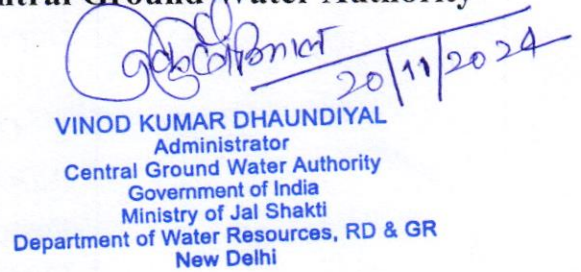 Central Ground Water Authority
20/11/2024
VINOD KUMAR DHAUNDIYAL
Administrator
Central Ground Water Authority
Government of India
Ministry of Jal Shakti
Department of Water Resources, RD & GR
New Delhi